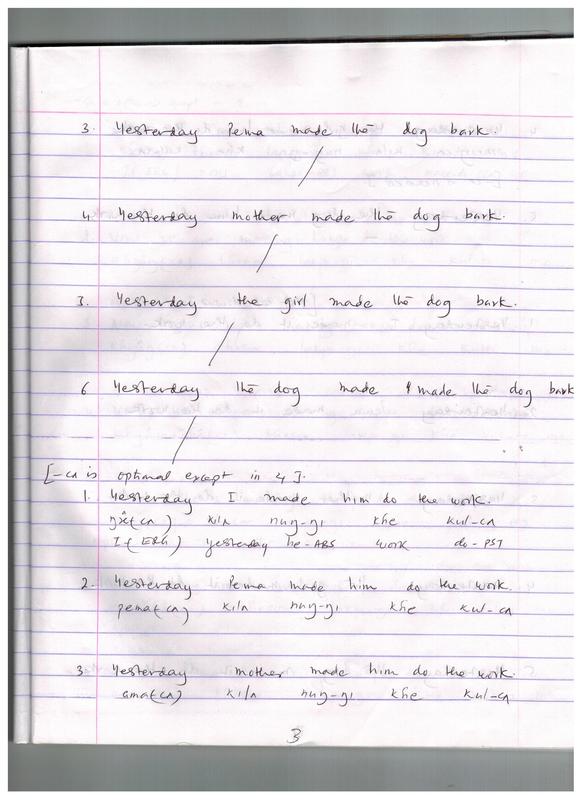 3. Yesterday Pema made the dog bark.
4. Yesterday mother made the dog bark.
3. Yesterday the girl made the dog bark.
6 Yesterday the dog made made the dog bark
[-cʌ is optimal except in 4].
1. Yesterday I made him do the work.
kiʌ nuŋ-gi khe kul-cʌ
I (ERG) yesterday he-ABS work do-PST
2. Yesterday Pema made him do the work.
pema(cʌ) kiʌ nuŋ-gi khe kul-cʌ
3. Yesterday mother made him do the work.
ama(cʌ) kiʌ nuŋ-gi khe kul-cʌ
3